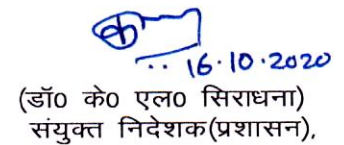 16.10.2020
(डॉ0 के0 एल0 सिराधना)
संयुक्त निदेशक(प्रशासन),